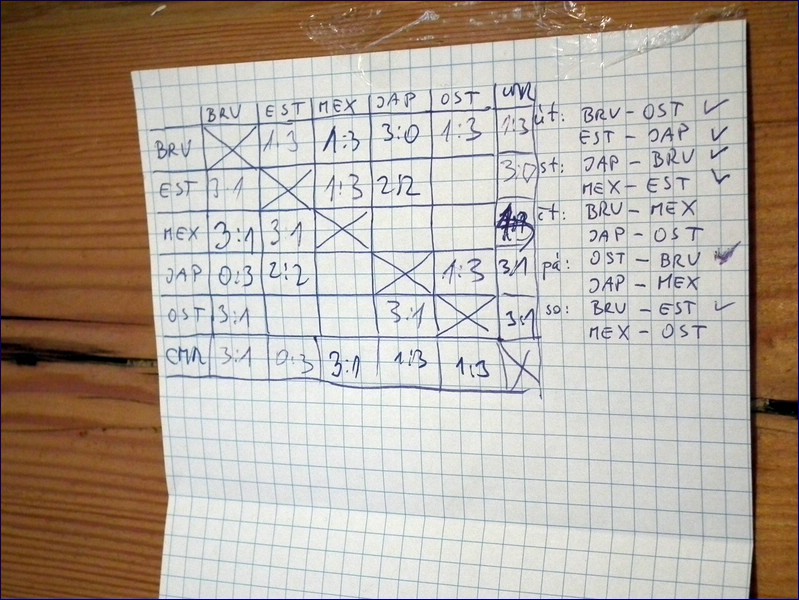 BRV EST MEX JAP OST CMR
BRV 1:3 1:3 3:0 1:3 1:3
EST 3:1 1:3 2:2 3:0
MEX 3:1 3:1
JAP 0:3 2:2 1:3 3:1
OST 3:1 3:1 3:1
CMR 3:1 0:3 3:1 1:3 1:3
út: BRV - OST ✓
EST - JAP ✓
st: JAP - BRV ✓
MEX - EST ✓
čt: BRV - MEX
JAP - OST
pá: OST - BRV ✓
JAP - MEX
so: BRV - EST ✓
MEX - OST